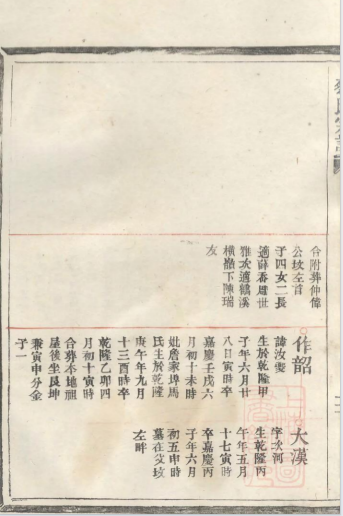 合附葬仲偉
公坟左首
子四女二長
適薛香
雅次適鶴溪
橫嶺下陳瑞
友
作韶
諱汝雯
生於乾隆甲
子年六月廿
八日寅時卒
嘉慶壬戌六
月初十未時
妣詹家埠馬
民生於乾隆
庚午年九月
十三酉時卒
乾隆乙卯四
月初十寅時
合葬本地祖
屋後坐艮坤
兼寅申分金
子一
大漢
字次河
生乾隆丙
午年五月
十七寅時
卒嘉慶丙
子年六月
初五申時
墓在父坟
左畔